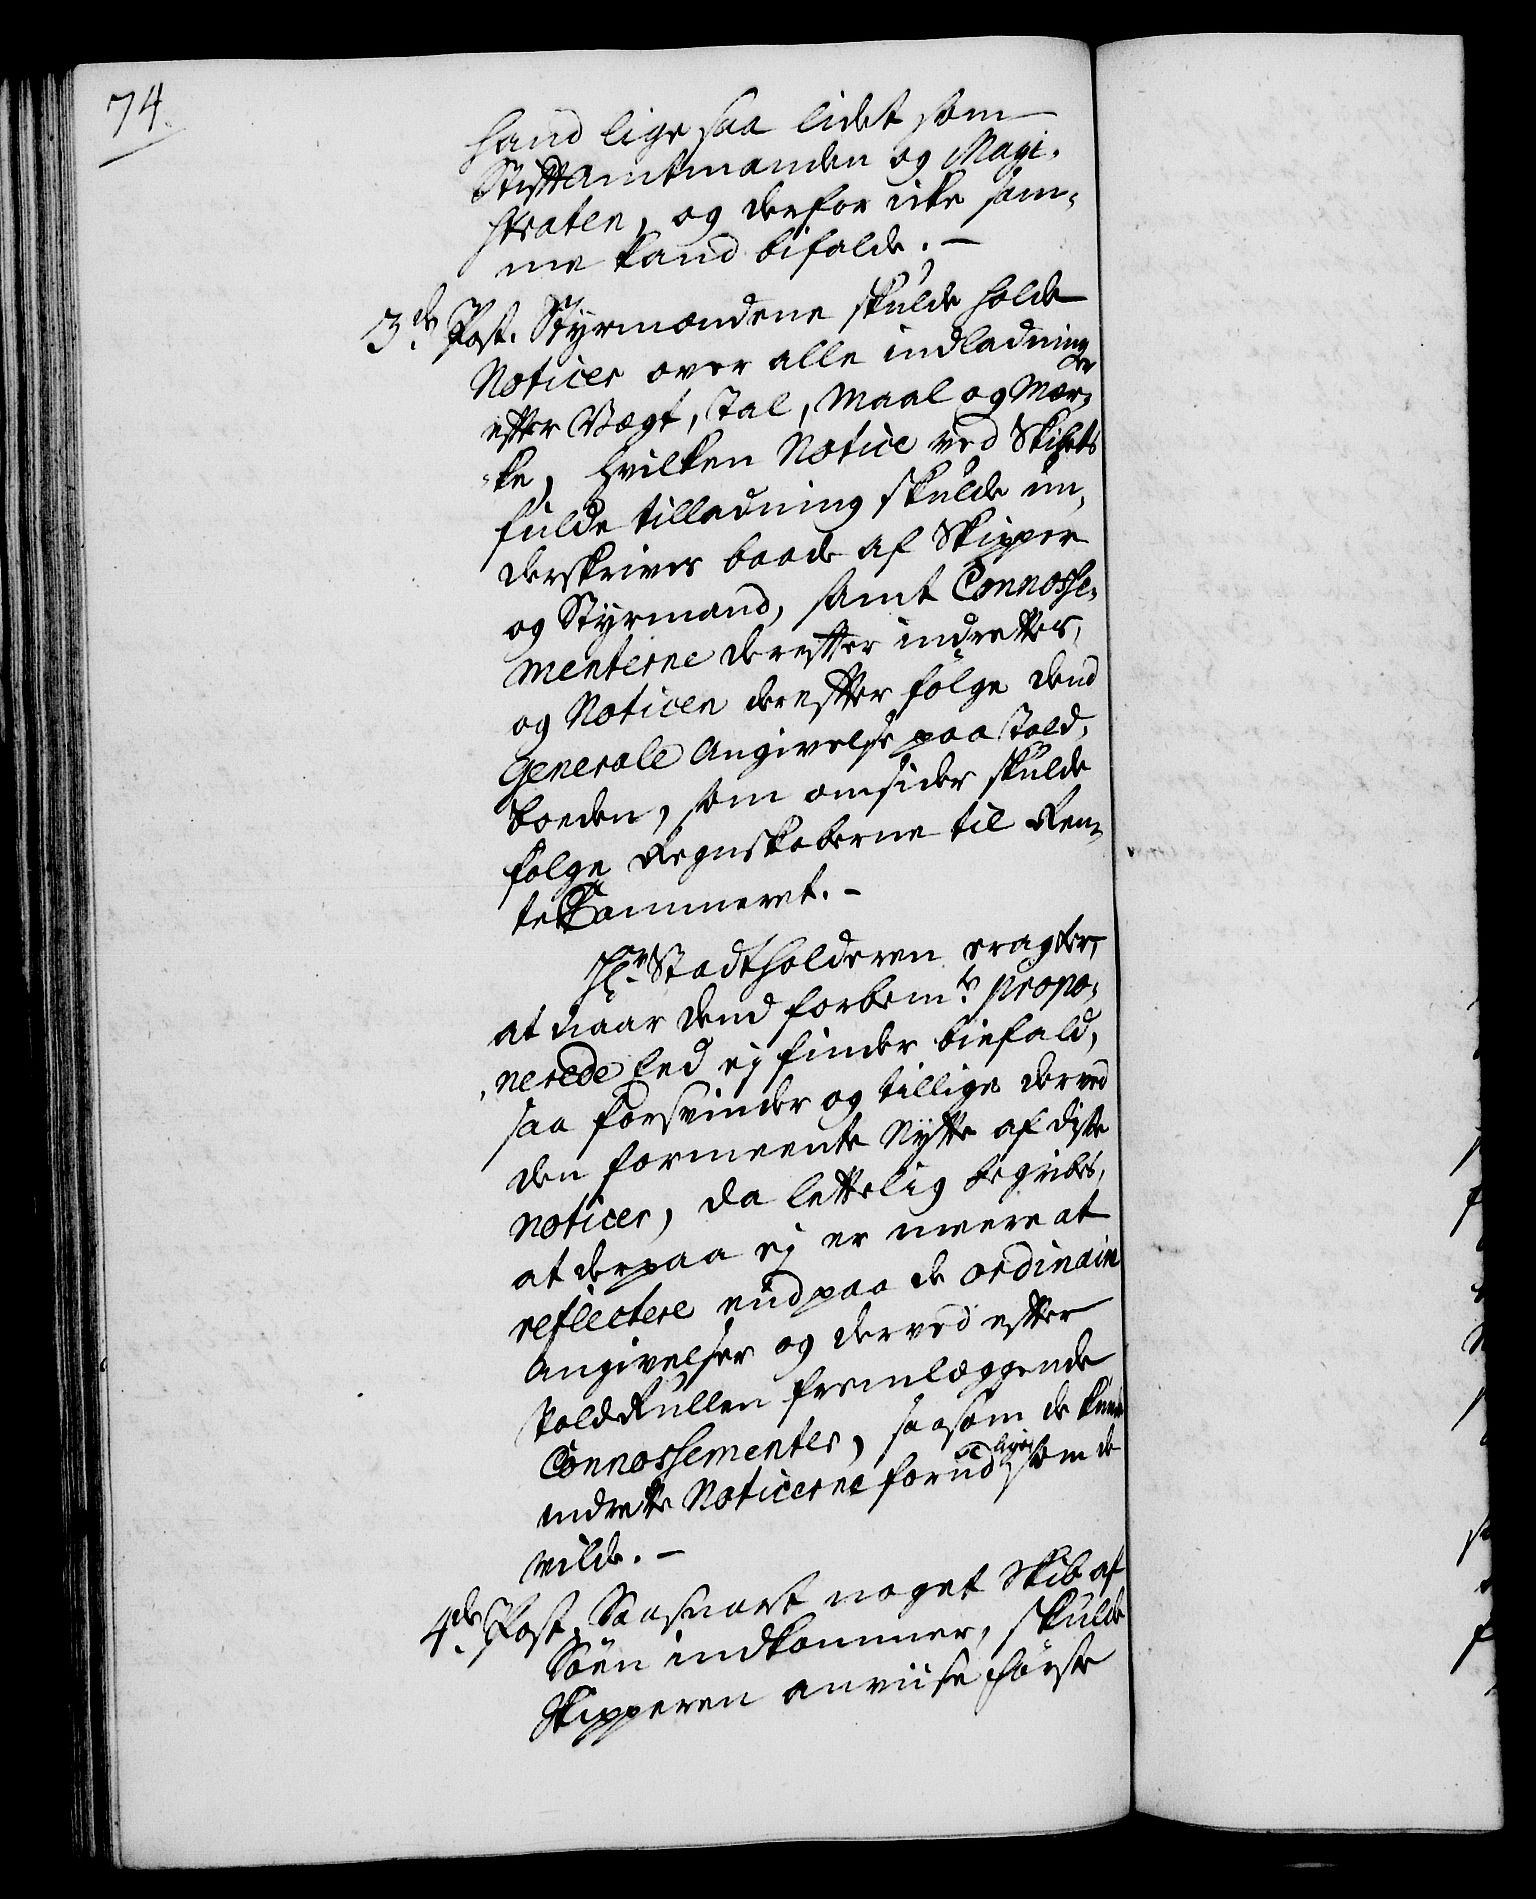 74.
hand lige saa lidet som
Stiftamtmanden og Magi-
straten, og derfor icke sam-
me kand bifalde. -
3de Post. Styrmændene skulde holde
Notices over alle indladninger
efter Vægt, Tal, Maal og Mær-
ke, hvilken Notice ved Skibets
fulde tilladning skulde un-
derskrives baade af Skipper
og Styrmand, samt Connosse-
menterne derefter indrettes,
og Noticen derefter følge dend
Generale Angivelse paa Told-
boeden, som omsider skulde
følge Regnskaberne til Ren-
teCammeret. -
Hr. Stadtholderen eragter,
at naar dend forbemte propo-
nerede Eed ej finder biefald,
saa forsvinder og tillige derved
den formeente Nytte af disse
Notices, da lettelig begribes,
at derpaa ej er meere at
reflectere end paa de ordinaire
Angivelser og derved efter
ToldRullen fremlæggende
Connossementer, saasom de kunde
indrette Noticerne forud ligesom de
vilde. -
4de Post. Saasnart noget Skib af
Söen indkommer, skulde
Skipperen anviise første